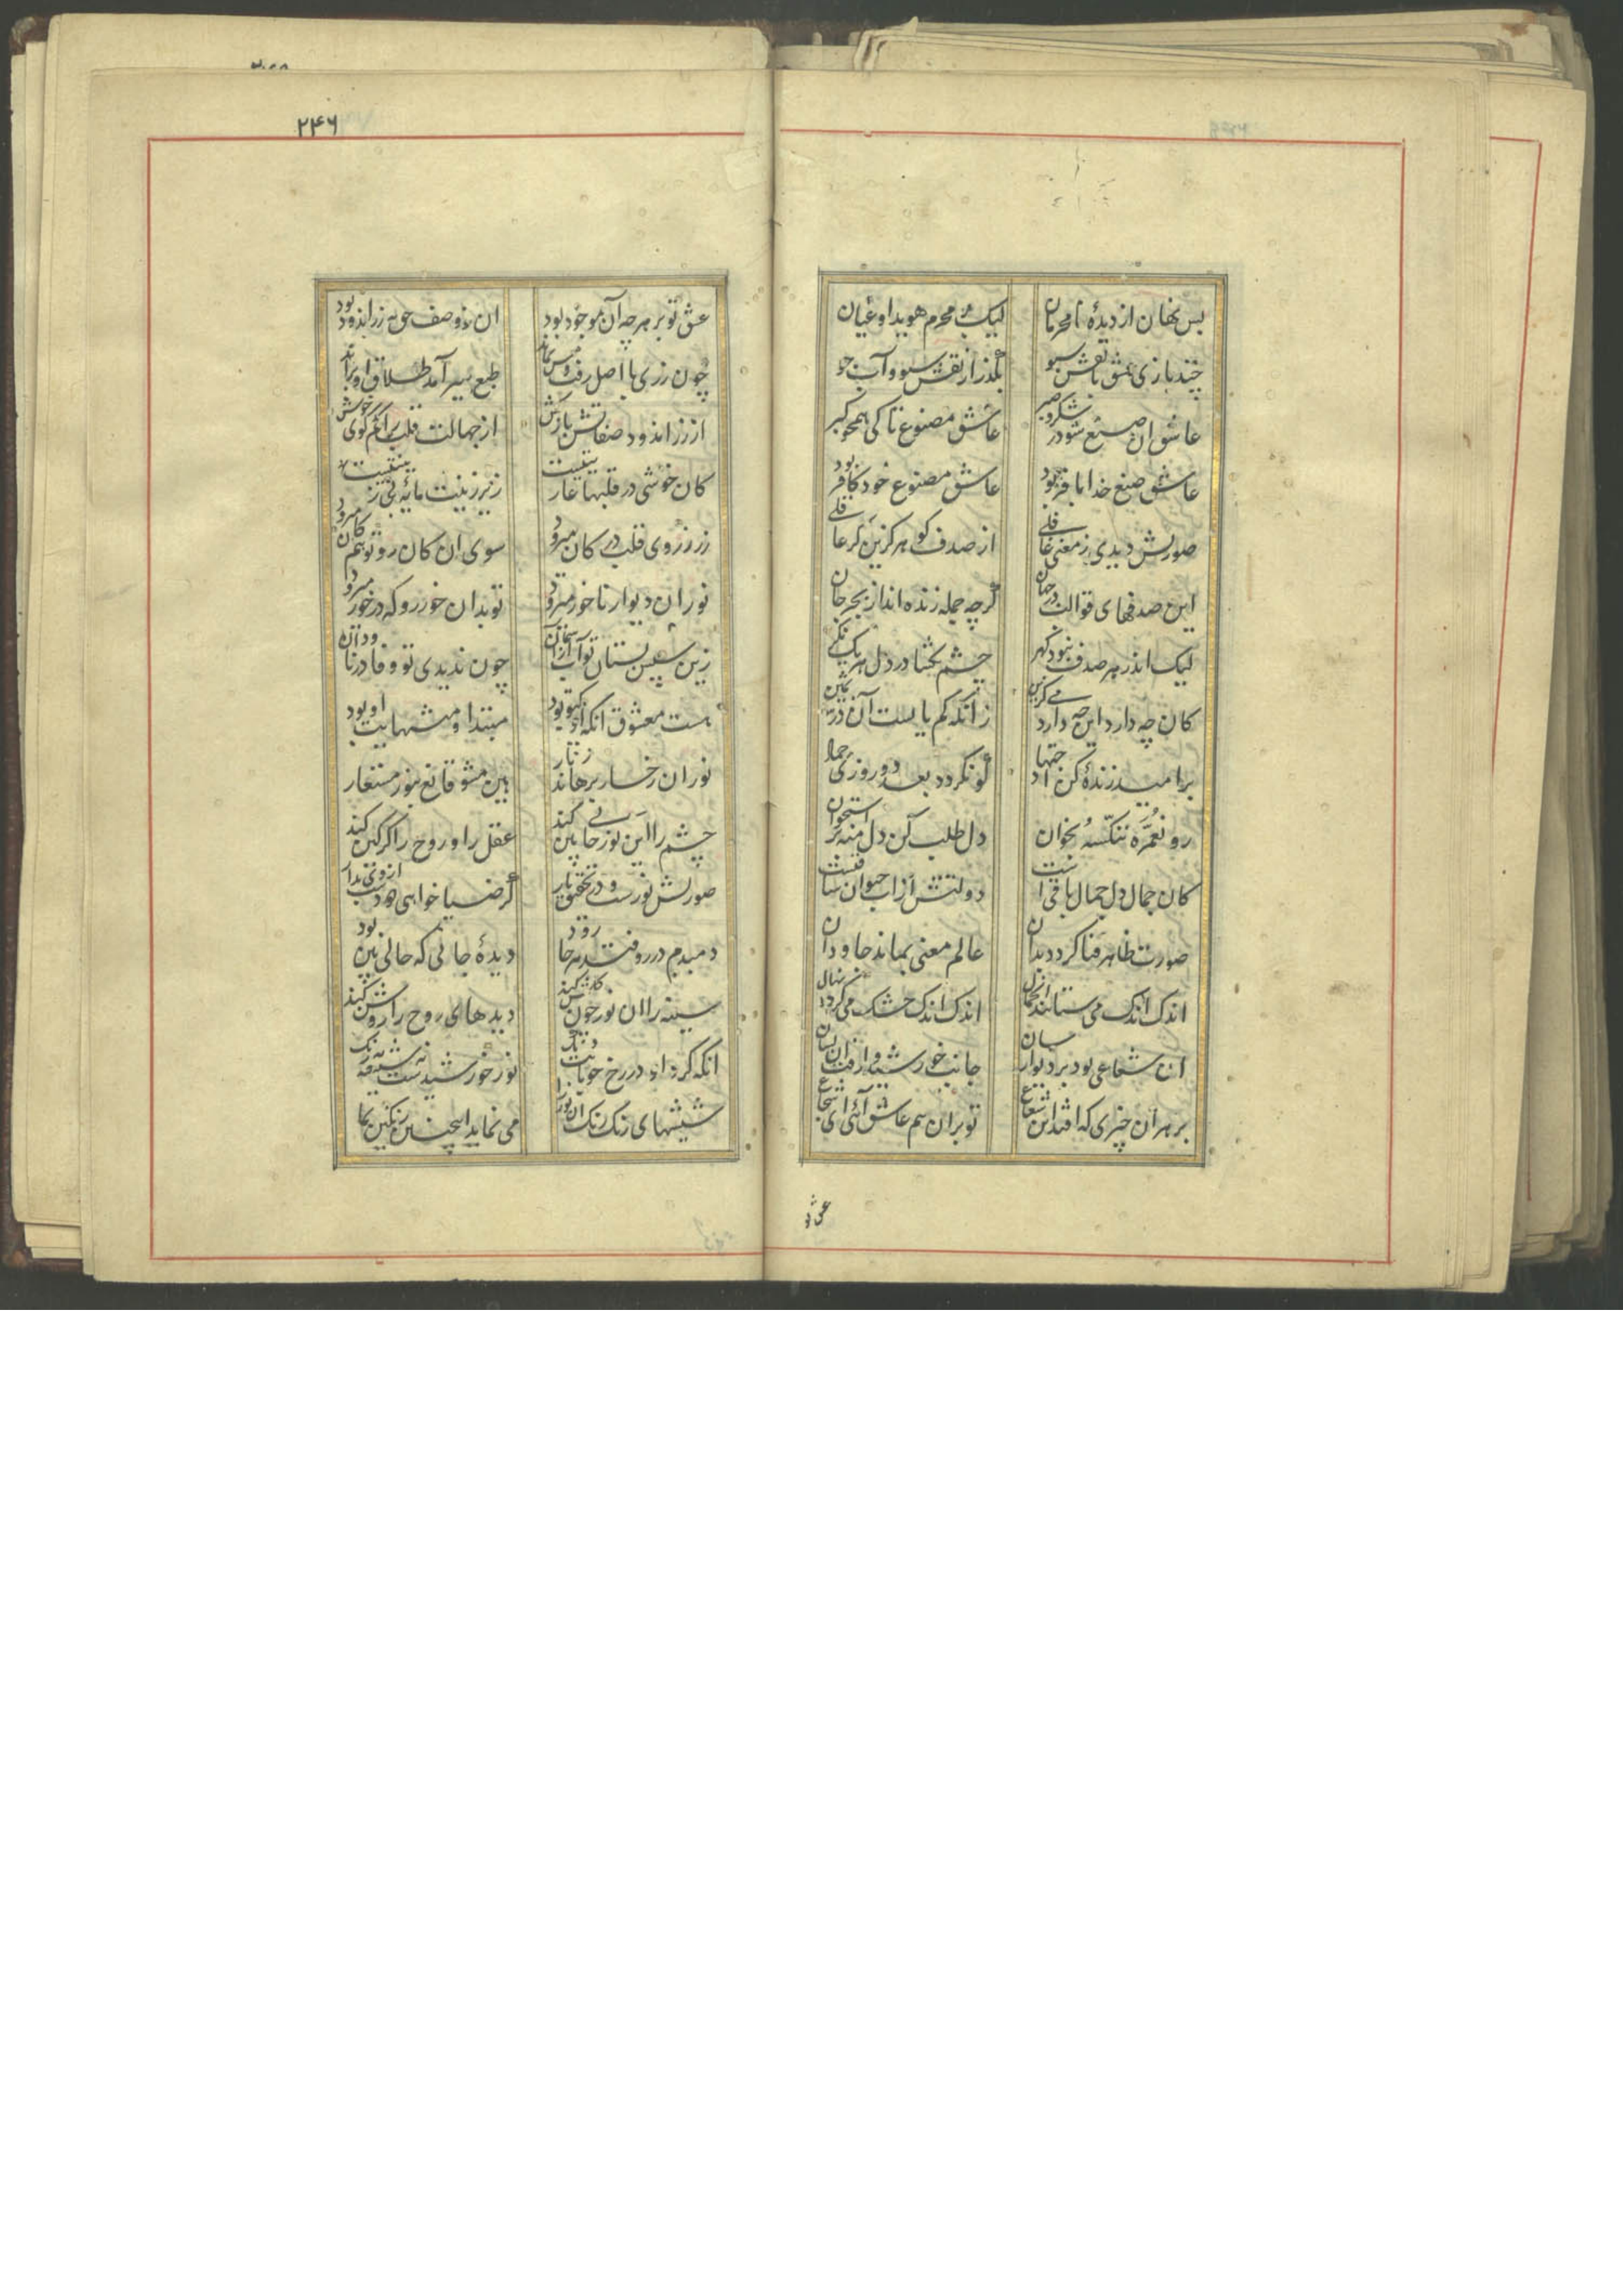 بس نهان از دیدهٔ نامحرمان
لیک بر محرم هویدا و عیان
چند بازی عشق با نقش سبو
بگذر از نقش سبو و آب جو
عاشق ان صنع شو در شکر و صبر
عاشق مصنوع تا کی همچو گبر
عاشق صنع خدا با فر بود
عاشق مصنوع خود کافر بود
صورتش دیدی ز معنی غافلی
از صدف کو هر کزین کر عاقلی
این صدفهای قوالب در جهان
گرچه جمله زنده اند از بحر جان
لیک اندر هر صدف نبود کهر
چشم بکشا در دل هر یک نکر
کان چه دارد این چه دارد می کزین
زانکه کم یابست آن در ثمین
دل طلب کن دل منه بر استخوان
رو نعمره ننکسه بخوان
کان جمال دل جمال باقی است
دولتش از اب حیوان ساقیست
صورت ظاهر فنا کردد بدان
عالم معنی بماند جاودان
اندک اندک می ستانند
اندک اندک خشک می کردد نهال
ان شعاعی بود بر دیوار
جانب خورشید وا رفت ان نشان
بر هر ان چیزی که افتد ان شعاع
تو بر ان هم عاشق آئی ای شجاع
عشق تو
۲۴۶
عشق تو بر هرچه آن موجود بود
ان ز وصف حق زر اندود بود
چون زری با اصل رفت و مس بماند
طبع سیر آمد طلاق او براند
از زر اندود صفاتش باز کش
از جهالت قلب را کم کوی خوش
کان خوشی در قلبها عاریتیست
زیر زینت مایه بی زینتیست
زر ز روی قلب در کان میرود
سوی ان کان رو تو هم کان میرود
نور ان دیوار تا خور میرود
تو بدان خور رو که در خور میرود
زین سپس بستان تو آب از آسمان
چون ندیدی تو وفا در ناودان
هست معشوق انکه او یکتو بود
مبتدا و منتهایت او بود
نور ان رخسار برهاند ز نار
هین مشو قانع بنور مستعار
چشم را این نور حالی بین کند
عقل را و روح را کرکین کند
صورتش نورست و در تحقیق نار
کر ضیا خواهی دو دست از وی بدار
دمبدم در رو فتد هر جا رود
دیدهٔ جانی که حالی بین بود
سینه را ان نور چون
دیدهای روح را روشن کند
انکه کرد او در رخ خوبانت دنک
نور خورشیدست از شیشه سه رنک
شیشهای رنک رنک ان نور را
می نماید اینچنین رنکین بما